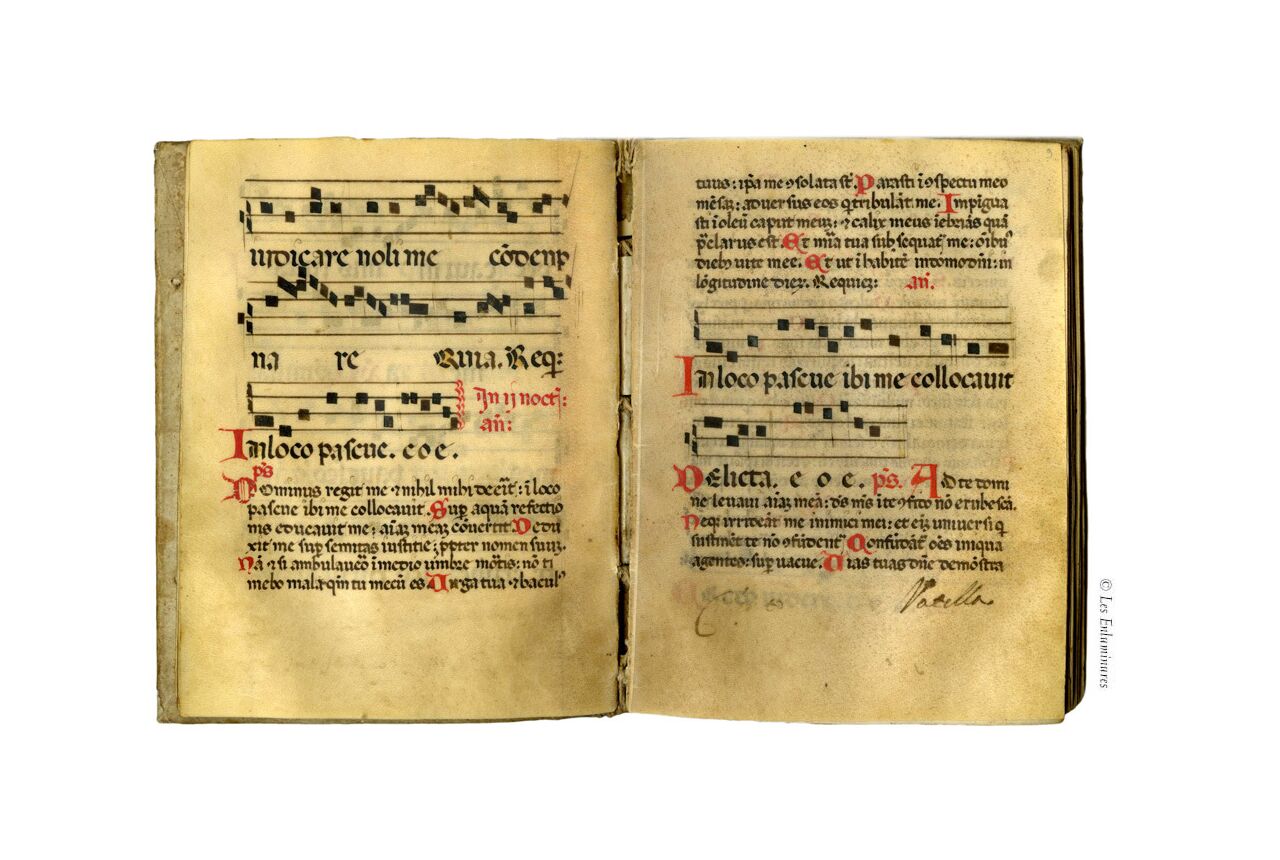 iudicare noli me cõdenp
na re Quia. Req̃:
In ij noct̃:
añ:
In loco pascue. e o e.
p̃s
Dominus regit me ⁊ nihil mihi deeřt: ĩ loco
pascue ibi me collocauit. Sup̱ aquã refectio
nis educauit me: aĩaȝ meaȝ cõuertit. Dedu
xit me sup̱ semitas iustitie: p̱pter nomen suuȝ.
Nã ⁊ si ambulauero ĩ medio umbre mortis: nõ ti
mebo mala: qm̃ tu mecũ es. Uirga tua ⁊ bacul⁹
tuus: ip̃a me ꝯsolata st̃. Parasti ĩ ꝯspectu meo
mẽsaȝ: aduersus eos q̃ tribulãt me. Impigua
sti ĩ oleũ caput meuȝ: ⁊ calix meus ĩebriãs quã
p̃clarus est. Et mĩa tua subsequat̃ me: oĩbu⁹
dieb⁹ uite mee. Et ut ĩhabitẽ in domo dñi: in
lõgitudine dieȝ. Requieȝ: añ.
In loco pascue ibi me collocauit
Delicta. e o e. p̃s. Ad te domi
ne leuaui aĩaȝ meã: ds̃ ms̃ ĩ te ꝯfito nõ erubescã.
Neq̃ irrideãt me inimici mei: et eĩȝ uniuersi q̃
sustinẽt te nõ ꝯfũdent̃. Confũdãt̃ oẽs iniqua
agentes: sup̱uacue. Uias tuas dñe demõstra
Vasello
© Les Enluminures